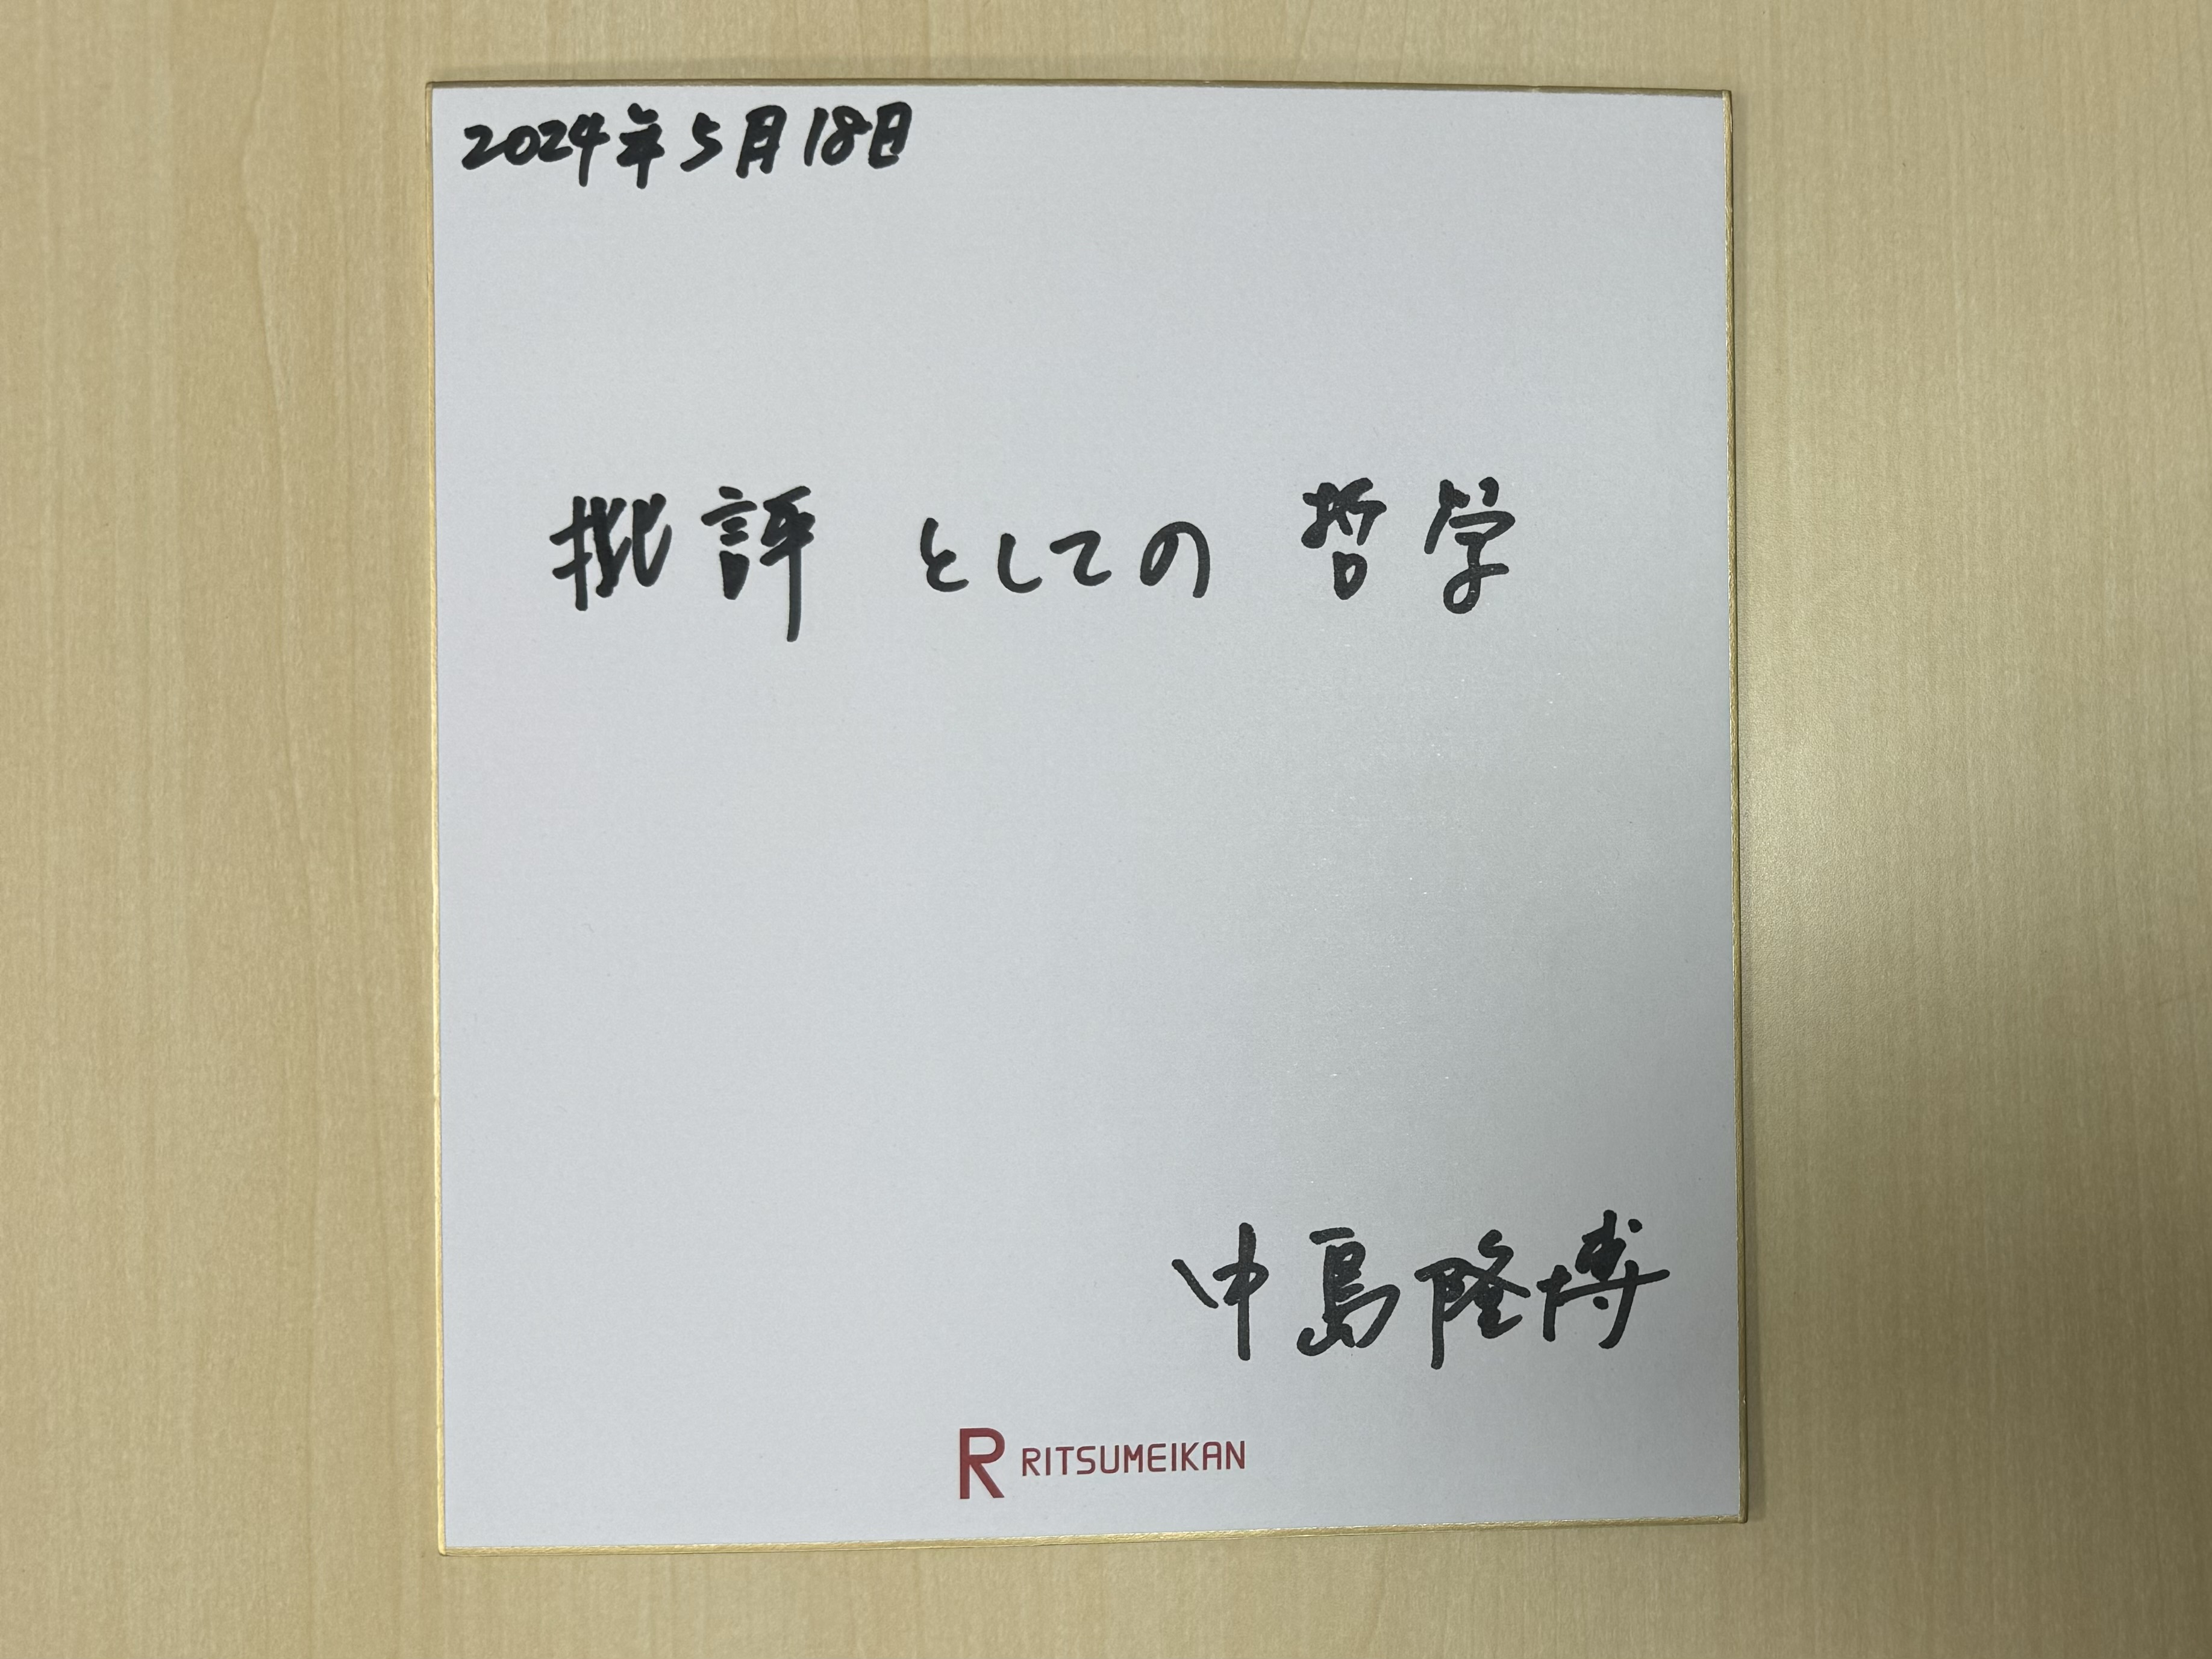 2024年5月18日
批評としての哲学
中島隆博
R RITSUMEIKAN